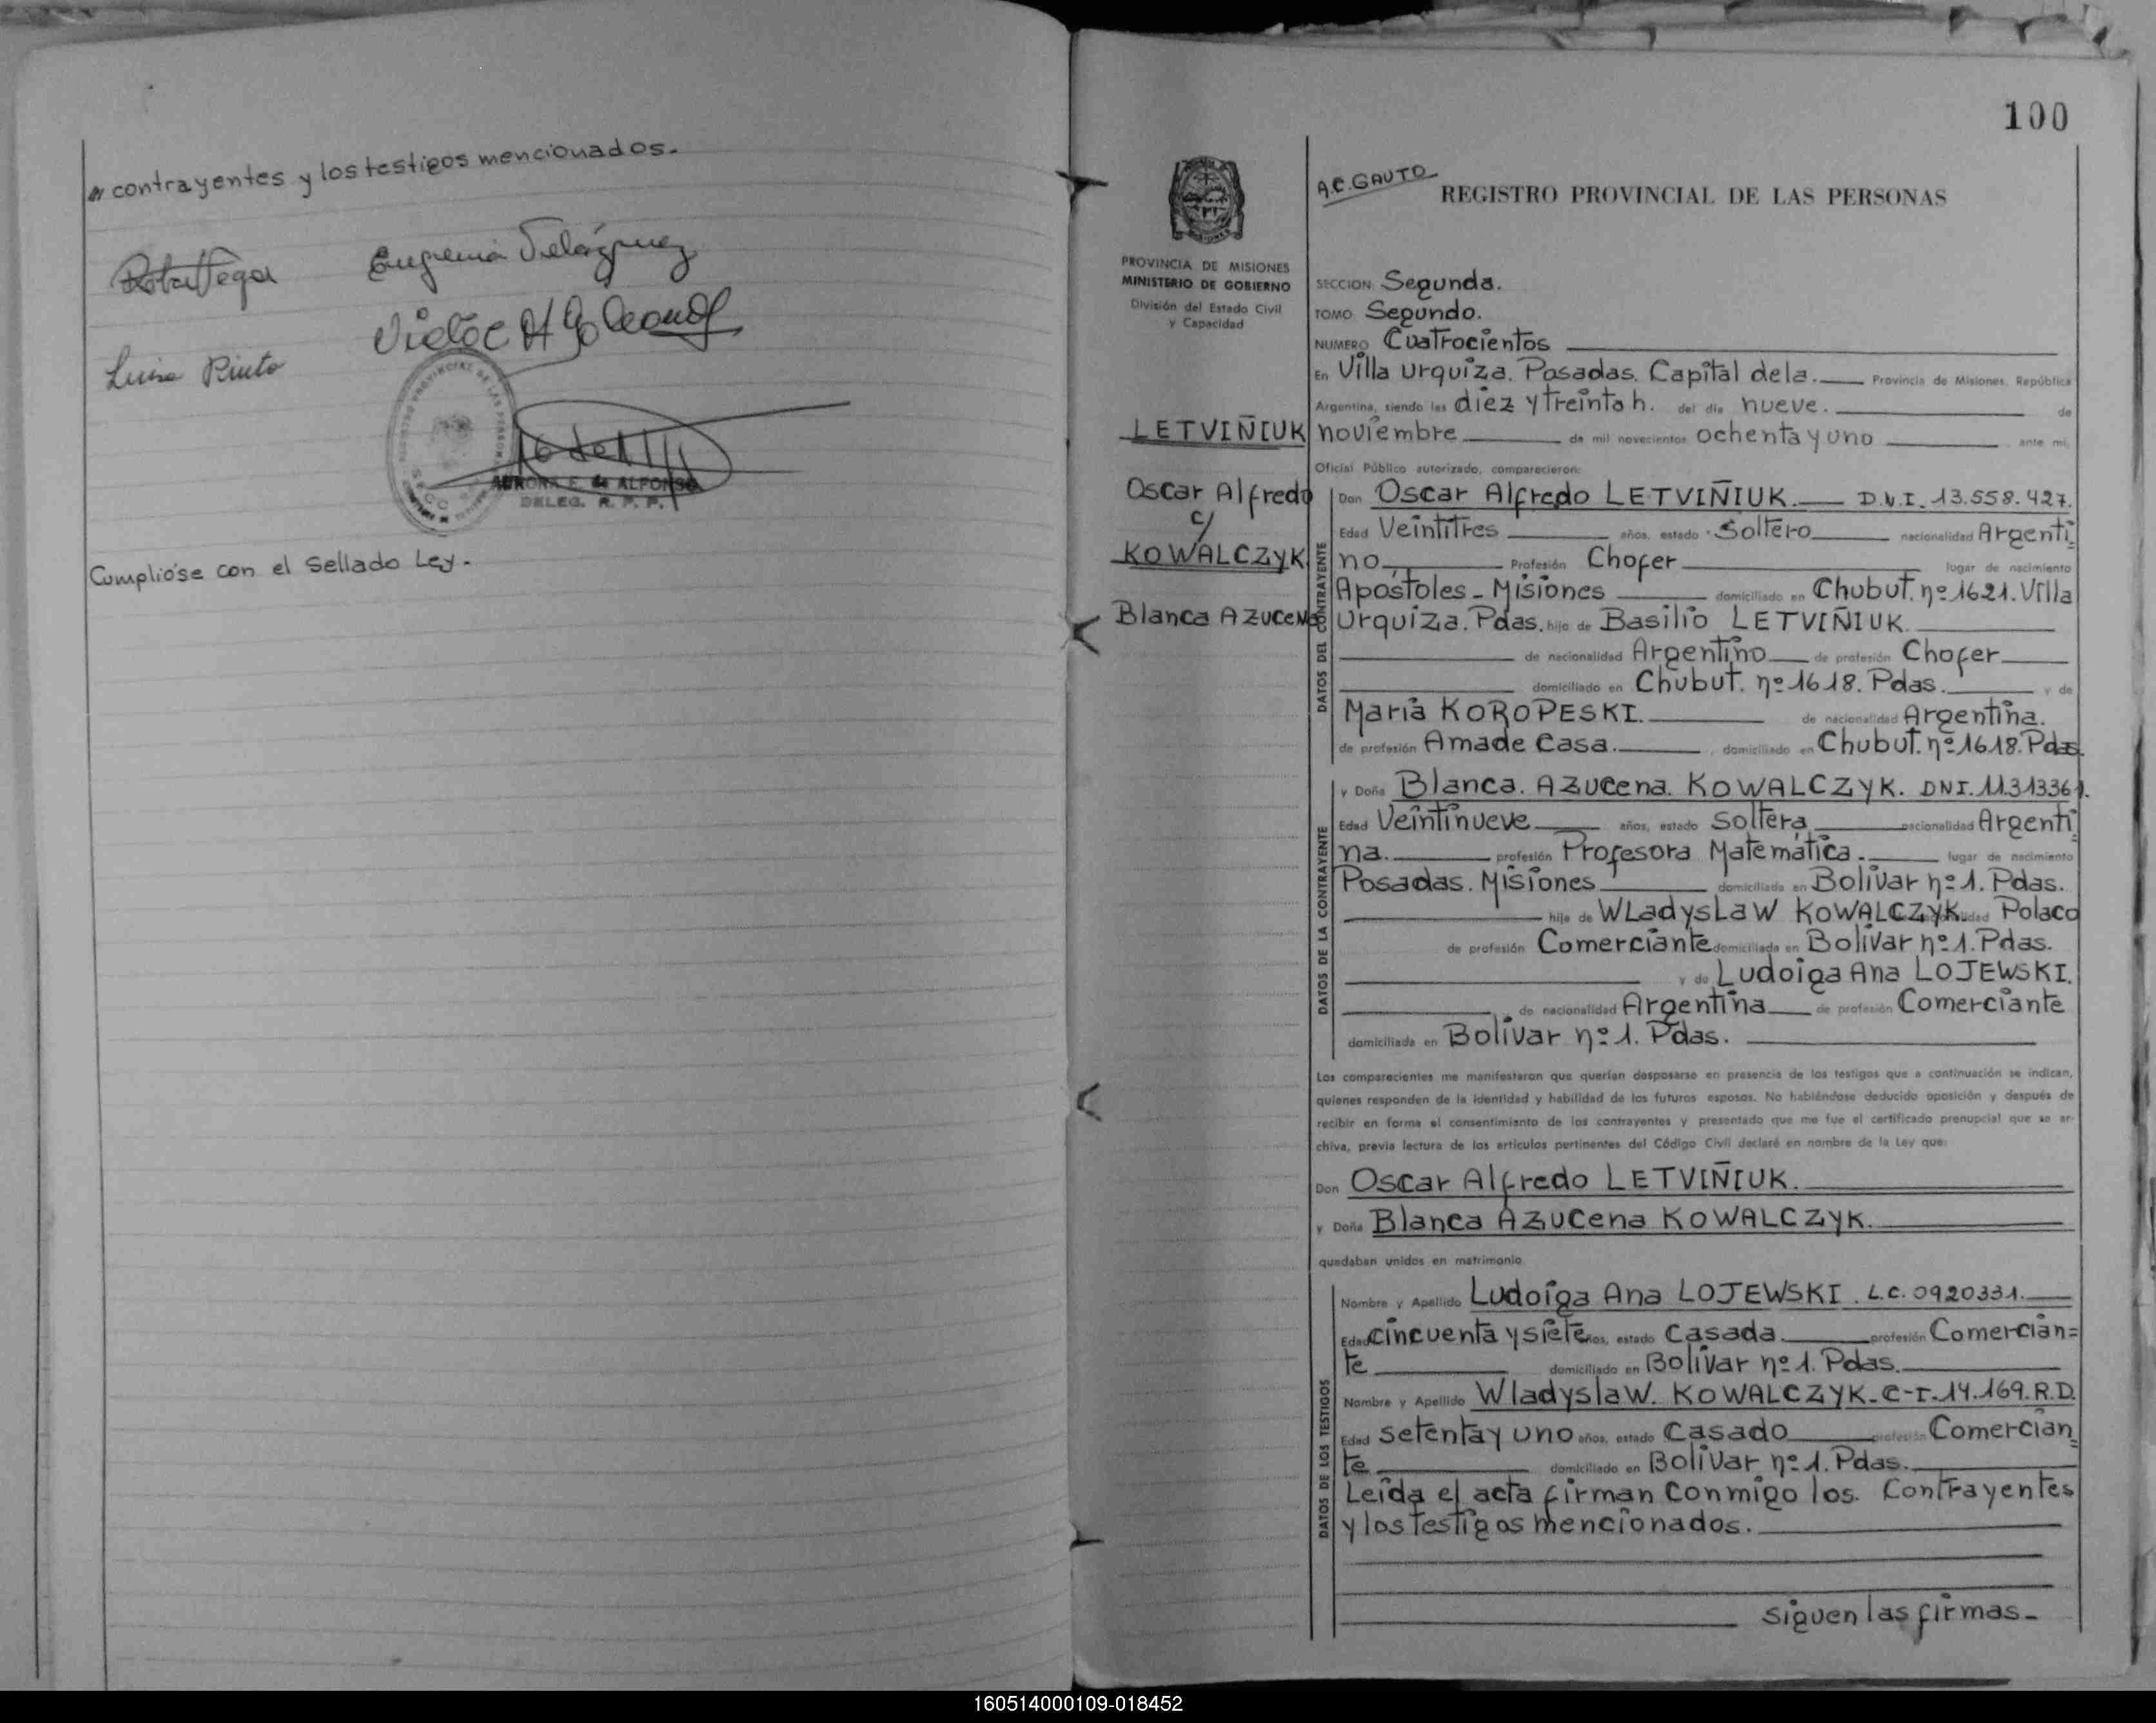 contrayentes y los testigos mencionados.-
Eugenia Velázquez
Luisa Pinto
REGISTRO PROVINCIAL DE LAS PERSONAS
AURORA E. de ALFONSO
DELEG. R. P. P.
Cumplióse con el Sellado Ley.-
100
A.C. GAUTO
REGISTRO PROVINCIAL DE LAS PERSONAS
PROVINCIA DE MISIONES
MINISTERIO DE GOBIERNO
División del Estado Civil
y Capacidad
LETVIÑIUK
Oscar Alfredo
c/
KOWALCZYK
Blanca Azucena
SECCION: Segunda.
TOMO Segundo.
NUMERO Cuatrocientos
En Villa Urquiza. Posadas. Capital de la. Provincia de Misiones, República
Argentina, siendo las diez y treinta h. del día nueve. de
noviembre de mil novecientos ochenta y uno ante mí,
Oficial Público autorizado, comparecieron:
DATOS DEL CONTRAYENTE
Don Oscar Alfredo LETVIÑIUK. D.N.I. 13.558.427.
Edad Veintitres años, estado Soltero nacionalidad Argenti
no Profesión Chofer lugar de nacimiento
Apóstoles - Misiones domiciliado en Chubut. nº 1621. Villa
Urquiza. Pdas. hijo de Basilio LETVIÑIUK.
de nacionalidad Argentino de profesión Chofer
domiciliado en Chubut. nº 1618. Pdas. y de
María KOROPESKI. de nacionalidad Argentina.
de profesión Ama de Casa. domiciliado en Chubut. nº 1618. Pdas.
DATOS DE LA CONTRAYENTE
y Doña Blanca. Azucena. KOWALCZYK. DNI. 11.313361.
Edad Veintinueve años, estado Soltera nacionalidad Argenti
na. profesión Profesora Matemática. lugar de nacimiento
Posadas. Misiones domiciliada en Bolivar nº 1. Pdas.
hija de WLadysLaW KOWALCZYK. nacionalidad Polaco
de profesión Comerciante domiciliada en Bolivar nº 1. Pdas.
y de Ludoiga Ana LOJEWSKI.
de nacionalidad Argentina de profesión Comerciante
domiciliada en Bolivar nº 1. Pdas.
Los comparecientes me manifestaron que querían desposarse en presencia de los testigos que a continuación se indican,
quienes responden de la identidad y habilidad de los futuros esposos. No habiéndose deducido oposición y después de
recibir en forma el consentimiento de los contrayentes y presentado que me fue el certificado prenupcial que se ar-
chiva, previa lectura de los artículos pertinentes del Código Civil declaré en nombre de la Ley que:
Don Oscar Alfredo LETVIÑIUK.
y Doña Blanca Azucena KOWALCZYK.
quedaban unidos en matrimonio.
DATOS DE LOS TESTIGOS
Nombre y Apellido Ludoiga Ana LOJEWSKI. L.C. 0920331.
Edad cincuenta y siete años, estado Casada. profesión Comercian=
te domiciliado en Bolivar nº 1. Pdas.
Nombre y Apellido WladyslaW. KOWALCZYK- C-I- 14.169. R.D.
Edad setenta y uno años, estado Casado profesión Comercian
te domiciliado en Bolivar nº 1. Pdas.
Leída el acta firman conmigo los. Contrayentes
y los testigos mencionados.
siguen las firmas-
160514000109-018452